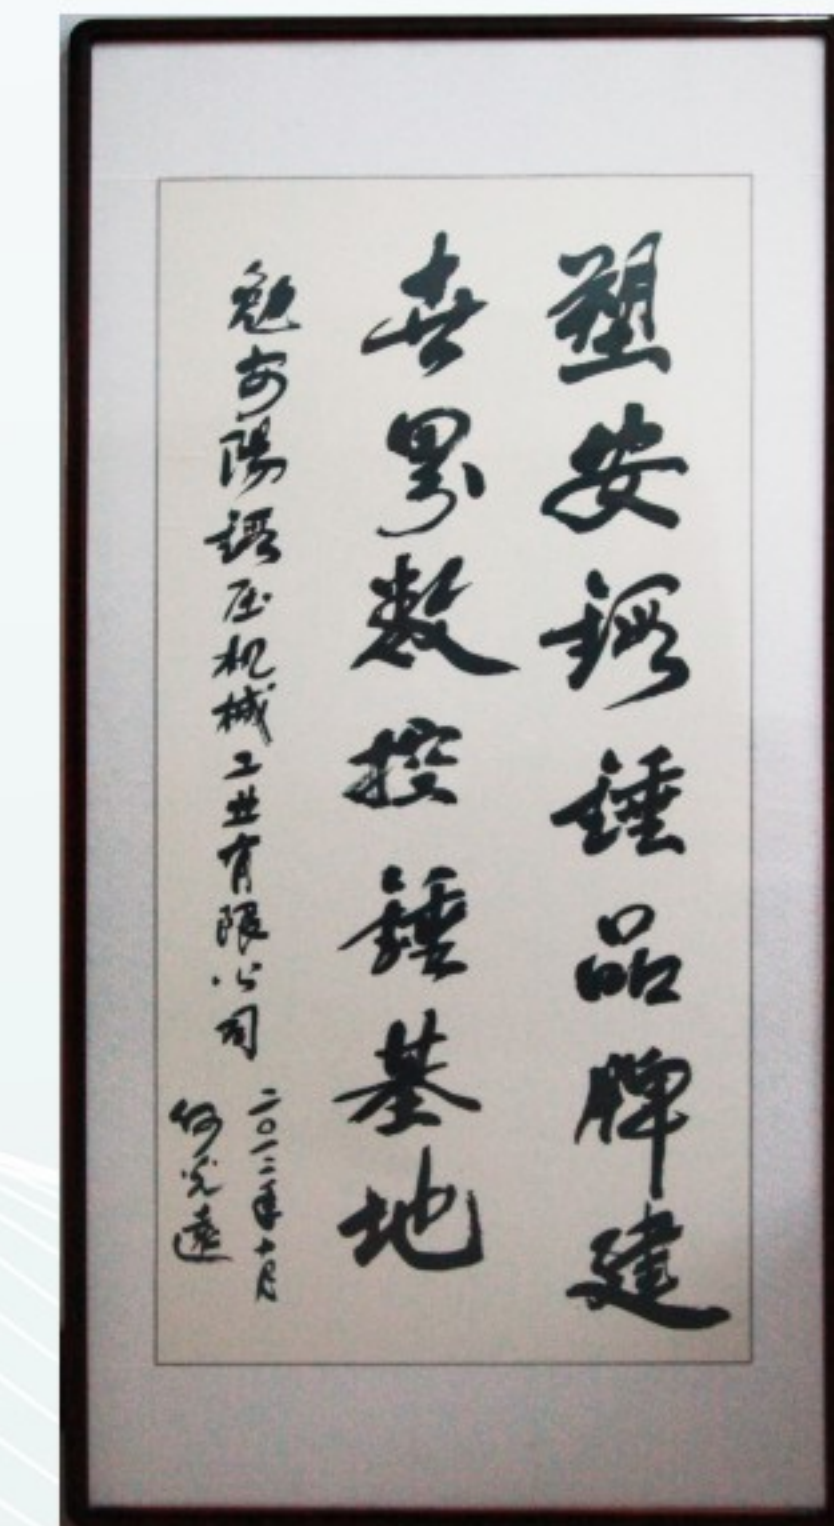 塑安锻锤品牌建
世界数控锤基地
勉安陽锻压机械工业有限公司
二〇一二年十月
何光遠